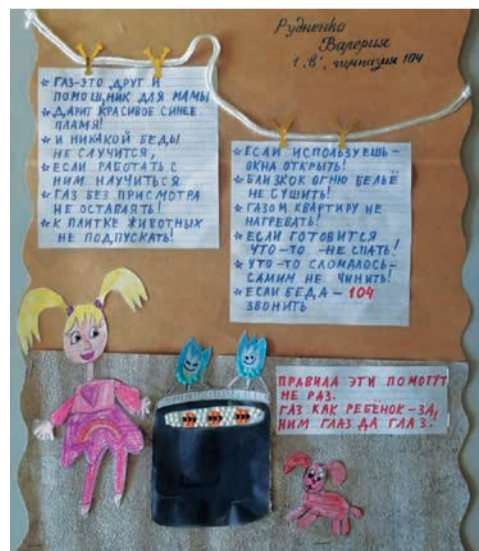 Рудненко
Валерия
1 „В", гимназия 104
☆ ГАЗ-ЭТО ДРУГ И
ПОМОЩНИК ДЛЯ МАМЫ
☆ ДАРИТ КРАСИВОЕ СИНЕЕ
ПЛАМЯ!
☆ И НИКАКОЙ БЕДЫ
НЕ СЛУЧИТСЯ,
☆ ЕСЛИ РАБОТАТЬ С
НИМ НАУЧИТЬСЯ
☆ ГАЗ БЕЗ ПРИСМОТРА
НЕ ОСТАВЛЯТЬ!
☆ К ПЛИТКЕ ЖИВОТНЫХ
НЕ ПОДПУСКАТЬ!
☆ ЕСЛИ ИСПОЛЬЗУЕШЬ-
ОКНА ОТКРЫТЬ!
☆ БЛИЗКОК ОГНЮ БЕЛЬЁ
НЕ СУШИТЬ!
☆ ГАЗОМ КВАРТИРУ НЕ
НАГРЕВАТЬ!
☆ ЕСЛИ ГОТОВИТСЯ
ЧТО-ТО -НЕ СПАТЬ!
☆ ЧТО-ТО СЛОМАЛОСЬ-
САМИМ НЕ ЧИНИТЬ!
☆ ЕСЛИ БЕДА - 104
ЗВОНИТЬ
ПРАВИЛА ЭТИ ПОМОГУТ
НЕ РАЗ.
ГАЗ КАК РЕБЁНОК-ЗА
НИМ ГЛАЗ ДА ГЛАЗ!